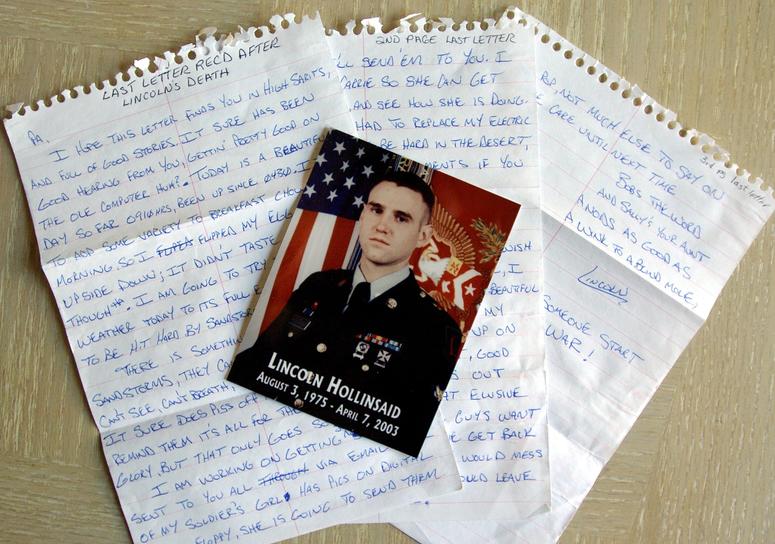 LAST LETTER REC'D AFTER
LINCOLN'S DEATH
PA,
I HOPE THIS LETTER FINDS YOU IN HIGH SPIRITS,
AND FULL OF GOOD STORIES. IT SURE HAS BEEN
GOOD HEARING FROM YOU, GETTIN' PRETTY GOOD ON
THE OLE COMPUTER HUH? TODAY IS A BEAUTIFUL
DAY SO FAR 0916HRS, BEEN UP SINCE 0430. I
TO ADD SOME VARIETY TO BREAKFAST CHOW
MORNING. SO I FLIPPED MY EGG
UPSIDE DOWN; IT DIDN'T TASTE
THOUGH. I AM GOING TO TRY
WEATHER TODAY TO ITS FULL
TO BE HIT HARD BY SANDSTOR
THERE IS SOMETHIN
SANDSTORMS, THEY CA
CAN'T SEE, CAN'T BREATH
IT SURE DOES PISS OFF
BEHIND THEM IT'S ALL FOR THE
GLORY BUT THAT ONLY GOES SO
I AM WORKING ON GETTING
SENT TO YOU ALL THROUGH VIA EMAIL
OF MY SOLDIER'S GIRL, HAS PICS ON DIGITAL
FLOPPY, SHE IS GOING TO SEND THEM
2ND PAGE LAST LETTER
LL SEND 'EM TO YOU. I
CARRIE SO SHE CAN GET
AND SEE HOW SHE IS DOING.
HAD TO REPLACE MY ELECTRIC
BE HARD IN THE DESERT,
MENTS IF YOU
NISH
, I
BEAUTIFUL
MY
UP ON
, GOOD
S OUT
AT ELUSIVE
GUYS WANT
E GET BACK
WOULD MESS
OULD LEAVE
3rd pg last letter
RD, NOT MUCH ELSE TO SAY ON
E CARE UNTIL NEXT TIME
BOBS THE WORD
AND SALLY'S YOUR AUNT
A NODS AS GOOD AS
A WINK TO A BLIND MOLE,
LINCOLN
SOMEONE START
WAR!
LINCOLN HOLLINSAID
AUGUST 3, 1975 - APRIL 7, 2003